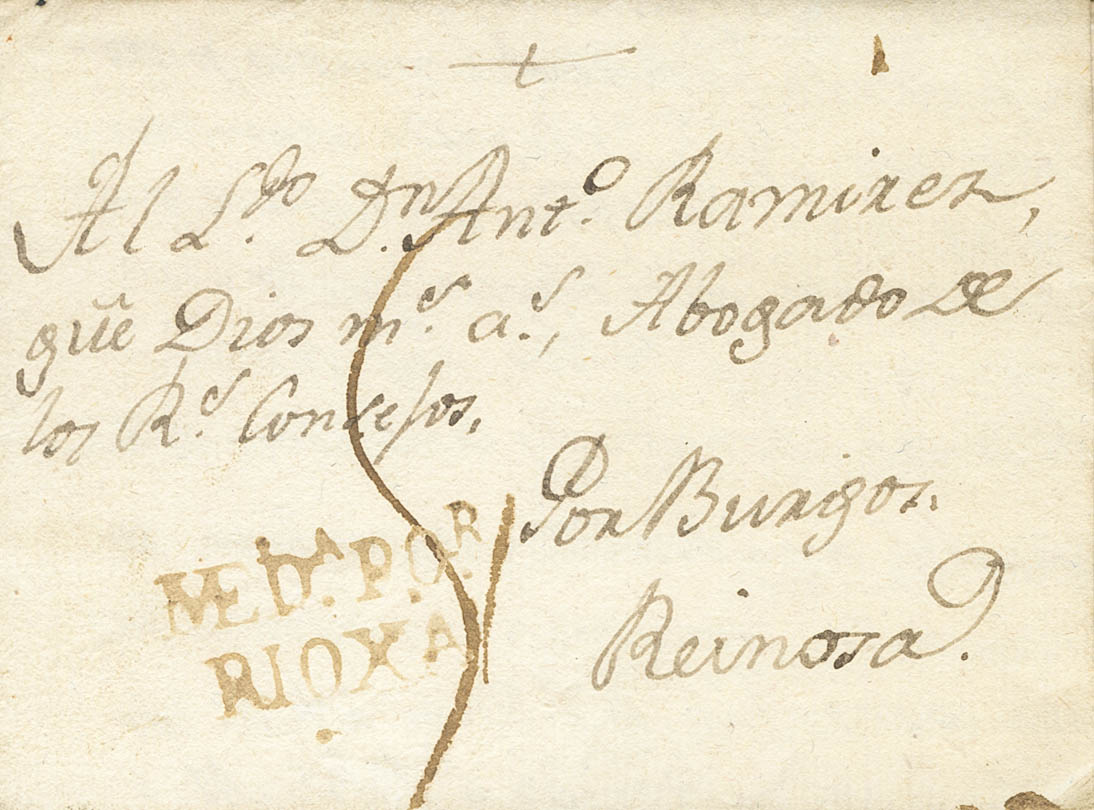 Al L.do D.n Ant.o Ramirez,
gũe Dios m.s a.s, Abogado de
los R.s Consejos.
Por Burgos.
Reinosa.
MED.A P.OR
RIOXA